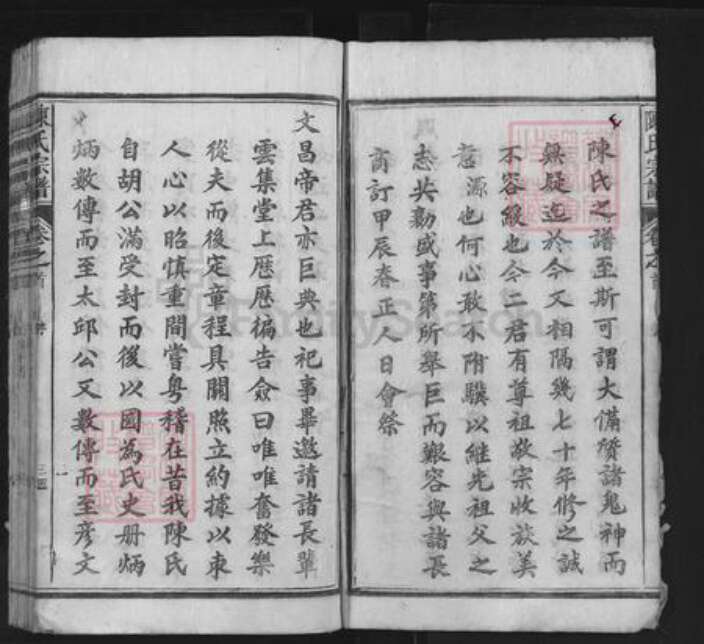 陳氏之譜至斯可謂大備質諸鬼神而
無疑迄於今又相隔幾七十年修之誠
不容緩也今二君有尊祖敬宗收族美
意源也何心敢不附驥以繼先祖父之
志共勷盛事第所舉巨而艱容與諸長
商訂甲辰春正人日會祭
文昌帝君亦巨典也祀事畢邀請諸長輩
雲集堂上歷歷徧告僉曰唯唯奮發樂
從夫而後定章程具關照立約據以束
人心以昭慎重間嘗粵稽在昔我陳氏
自胡公滿受封而後以國為氏史册炳
炳數傳而至太邱公又數傳而至彦文
陳氏宗譜
卷之首
陳氏宗譜 卷之首
FamilySearch